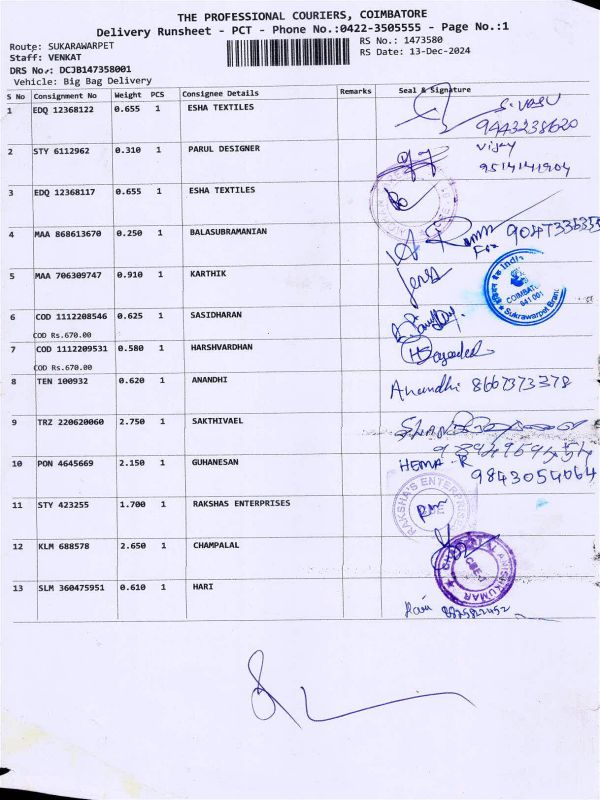 THE PROFESSIONAL COURIERS, COIMBATORE
Delivery Runsheet - PCT - Phone No.:0422-3505555 - Page No.:1
Route: SUKARAWARPET RS No.: 1473580
Staff: VENKAT RS Date: 13-Dec-2024
DRS No.: DCJB147358001
Vehicle: Big Bag Delivery
S No Consignment No Weight PCS Consignee Details Remarks Seal & Signature
1 EDQ 12368122 0.655 1 ESHA TEXTILES S. VASU
9443238620
2 STY 6112962 0.310 1 PARUL DESIGNER Vijay
9514141904
3 EDQ 12368117 0.655 1 ESHA TEXTILES
4 MAA 868613670 0.250 1 BALASUBRAMANIAN
5 MAA 706309747 0.910 1 KARTHIK
COIMBATORE
641 001
Sukrawarpet Branch
6 COD 1112208546 0.625 1 SASIDHARAN
COD Rs.670.00
7 COD 1112209531 0.580 1 HARSHVARDHAN
COD Rs.670.00
8 TEN 100932 0.620 1 ANANDHI Anandhi 8667373378
9 TRZ 220620060 2.750 1 SAKTHIVAEL
10 PON 4645669 2.150 1 GUHANESAN HEMA R
9843054064
11 STY 423255 1.700 1 RAKSHAS ENTERPRISES
RAKSHA'S ENTERPRISES
12 KLM 688578 2.650 1 CHAMPALAL
13 SLM 360475951 0.610 1 HARI
Hari